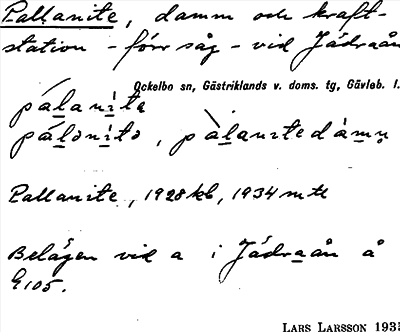 Pallanite, damm och kraft-
station - förr såg - vid Jädraån
Ockelbo sn, Gästriklands v. doms. tg, Gävleb. l.
pálanítə
pálònítò, pàlanitedàmn
Pallanite, 1928 kb, 1934 mtl
Belägen vid a i Jädraån å
G105.
LARS LARSSON 1935